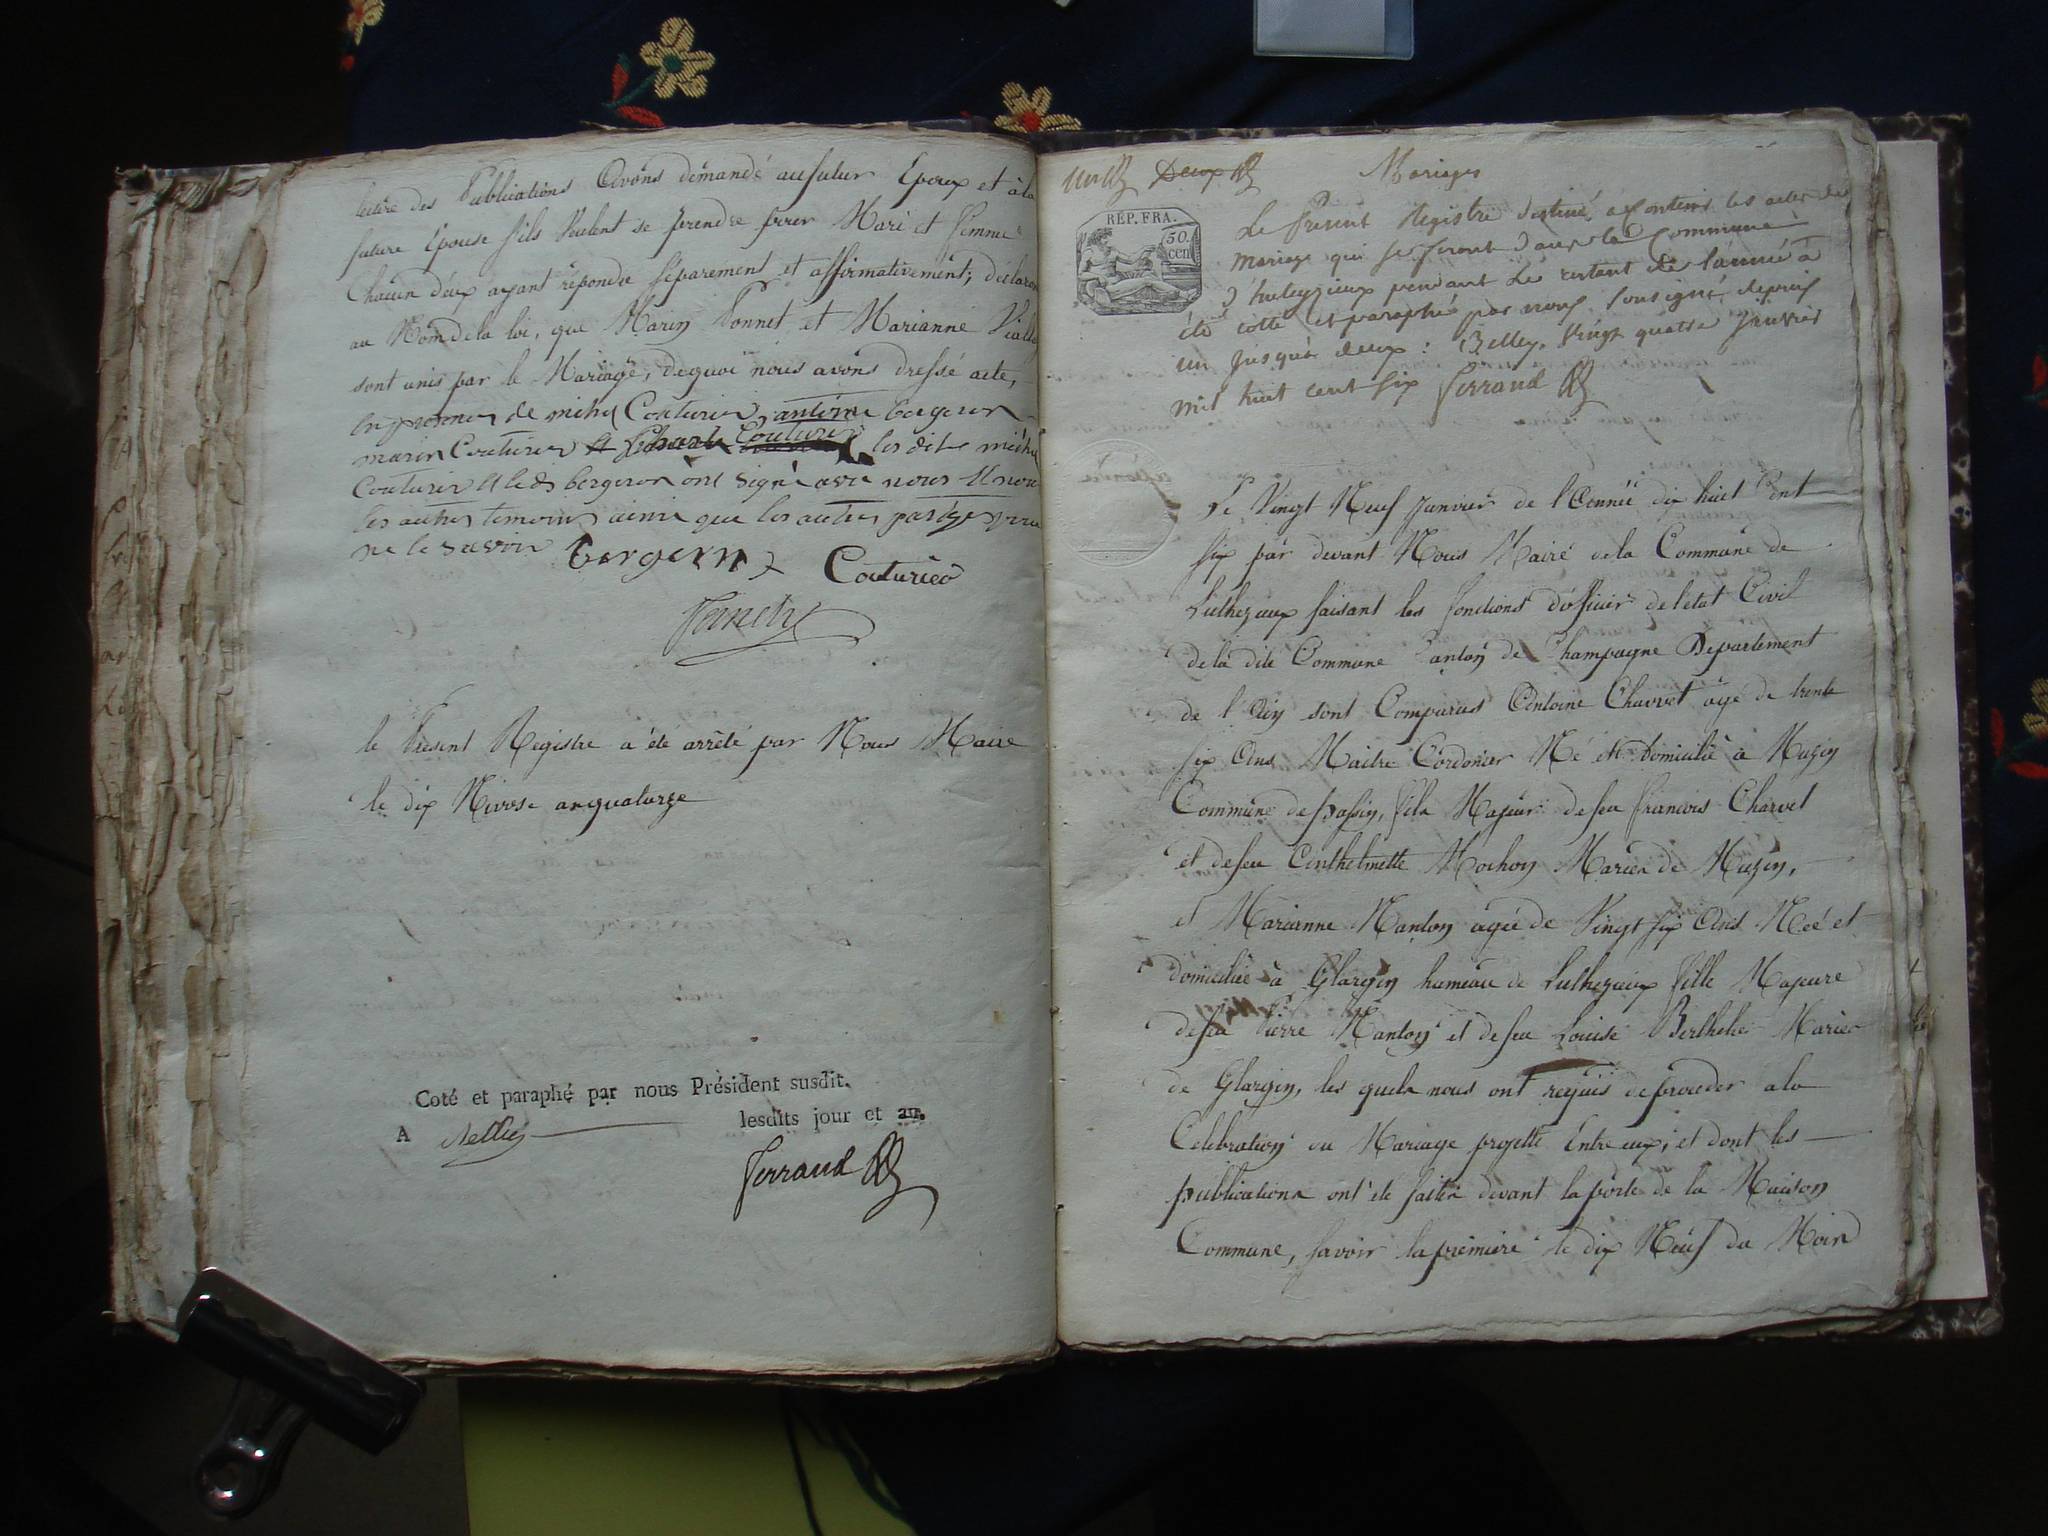 lecture des Publications Avons démandé au futur Epoux et à la
future Epouse s'ils Veulent se prendre pour Mari et femme
Chacun d'eux ayant répondu séparement et affirmativement; déclarons
au Nom de la loi, que Marin Bonnet et Marianne
sont unis par le Mariage, dequoi nous avons dressé acte,
en presence de michel Couturier, antoine bergeron
marin Couturier et Couturier les dits michel
Couturier et led bergeron ont signé avec nous et non
les autres temoins ainsi que les autres parties pour
ne le savoir bergeron Couturier
le Present Registre a été arrêté par Nous Maire
le dix Nivose an quatorze
Coté et paraphé par nous Président susdit.
A Belley lesdits jour et an.
Ferrand
un Deux Mariages
RÉP. FRA.
50. cen
Le Present Registre destiné a contenir les actes de
mariage qui se feront dans la Commune
d'huleyzieux pendant le restant de l'année à
été cotté et paraphé par nous soussigné, depuis
un jusqu'à deux: Belley, Vingt quatre Janvier
mil huit cent six Ferrand
Le Vingt Neuf Janvier de l'Année dix huit Cent
six par devant Nous Maire de la Commune de
Luthezieux faisant les fonctions d'officier de l'état Civil
de la dite Commune Canton de Champagne Departement
de l'Ain sont Comparus Antoine Charvet agé de trente
six Ans Maitre Cordonier Né et Domicilié à Muzin
Commune de passin, fils Majeur de feu francois Charvet
et de feu Anthelmette Mochon Mariés de Muzin,
et Marianne Nanton agée de Vingt six Ans Neé et
domiciliée à Glargin hameau de Luthezieux fille Majeure
de feu Pierre Nanton et de feu Louise Berthelie Mariés
de Glargin, les quels nous ont requis de proceder a la
Celebration du Mariage projetté Entre eux, et dont les
publications ont été faites devant la porte de la Maison
Commune, savoir la premiere le dix Neuf du Mois